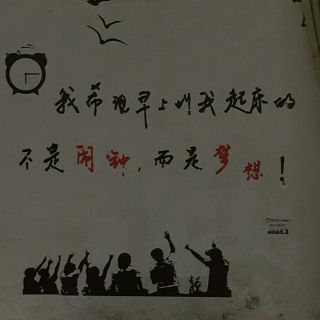 我希望早上叫我起床的
不是闹钟，而是梦想！